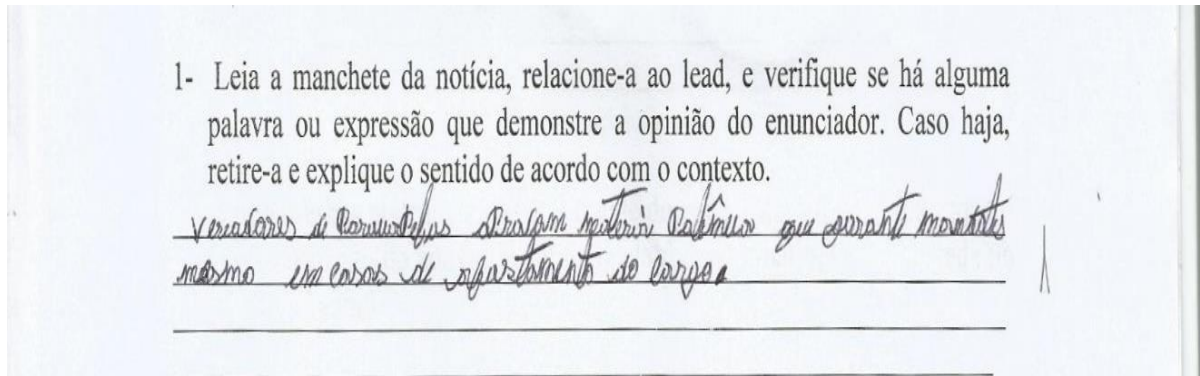 1- Leia a manchete da notícia, relacione-a ao lead, e verifique se há alguma
palavra ou expressão que demonstre a opinião do enunciador. Caso haja,
retire-a e explique o sentido de acordo com o contexto.
Vereadores de que garante
mesmo em casos de afastamento do cargo